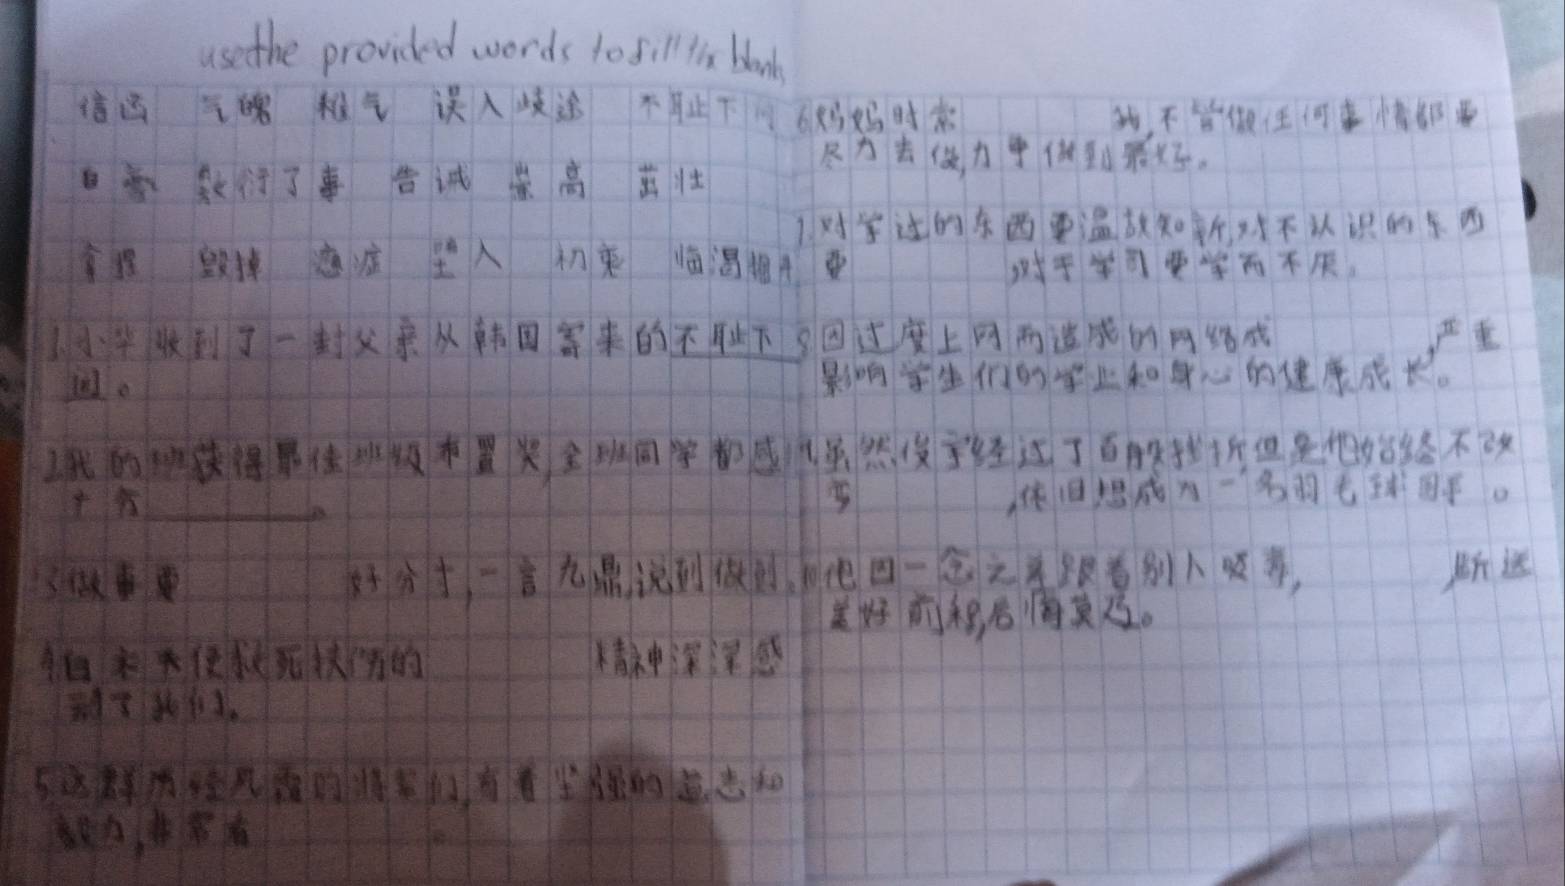 use the provided words to fill the blank
信函 气魄 稚气 误入歧途 不耻下问
自豪 敷衍了事 告诫 崇高 茁壮
拿捏 毁掉 瘾 坠入 初衷 临渴掘井
1.小华收到了一封父亲从韩国寄来的不耻下
问。
2.我的班获得最佳班级布置奖,全班同学都感
十分 。
3.做事要 好分寸,一言九鼎,说到做到。
4.白衣天使救死扶伤的 精神深深感
动了我们。
5.这群历经风霜的将军们,有着坚强的意志和
毅力,非常有 。
6.妈妈时常 我,不管做任何事情都要
尽力去做,力争做到最好。
7.对学过的东西要温故知新,对不认识的东西
要 ,对于学习要学而不厌。
8.因过度上网而造成的网络成 ,严重
影响学生们的学业和身心的健康成长。
9.虽然俊宇经过了百般挫折,但是他始终不改
变 ,依旧想成为一名羽毛球国手。
10.他因一念之差跟着别人吸毒, ,断送
美好前程,后悔莫及。